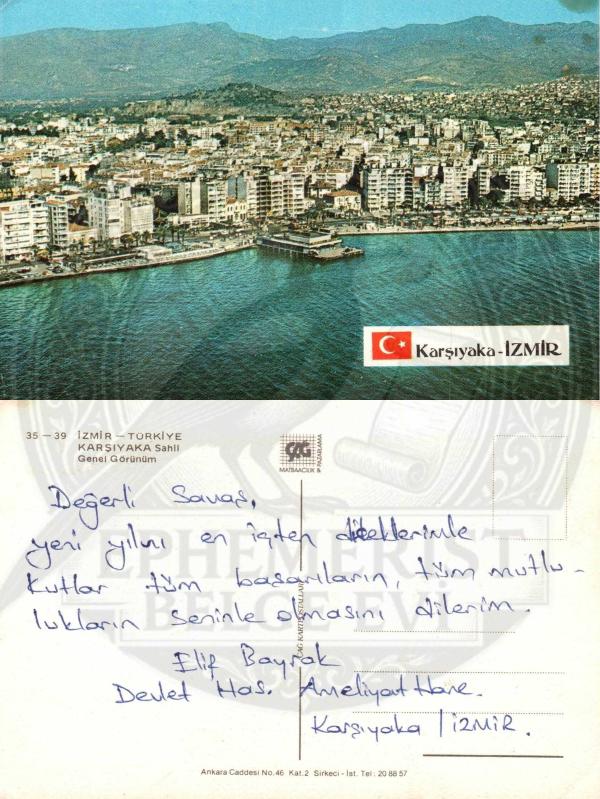 Karşıyaka-İZMİR
35 – 39 İZMİR – TÜRKİYE
KARŞIYAKA Sahil
Genel Görünüm
ÇAĞ
MATBAACILIK & PAZARLAMA
Değerli Savaş,
yeni yılını en içten dileklerimle
kutlar tüm başarıların, tüm mutlu-
lukların seninle olmasını dilerim.
Elif Bayrak
Devlet Has. Ameliyat Hane.
Karşıyaka / İZMİR.
ÇAĞ KARTPOSTALLARI
EPHEMERIST
BELGE EVİ
Ankara Caddesi No.46 Kat.2 Sirkeci - İst. Tel: 20 88 57